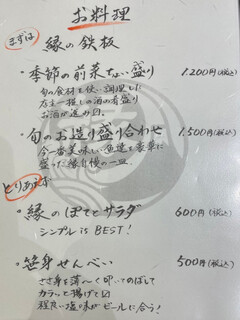 お料理
まずは
縁の鉄板
・季節の前菜ちょい盛り 1,200円(税込)
旬の食材を使い調理した
店主一推しの酒の肴盛り
お酒が進み〼。
・旬のお造り盛り合わせ 1,500円(税込)
今一番美味しい魚達を豪華に
盛った縁自慢の一皿。
とりあえず
・縁のぽてとサラダ 600円(税込)
シンプル is BEST!
・笹身せんべい 500円(税込)
ささ身を薄〜く叩いてのばして
カラッと揚げて〼
程良い塩味がビールに合う!